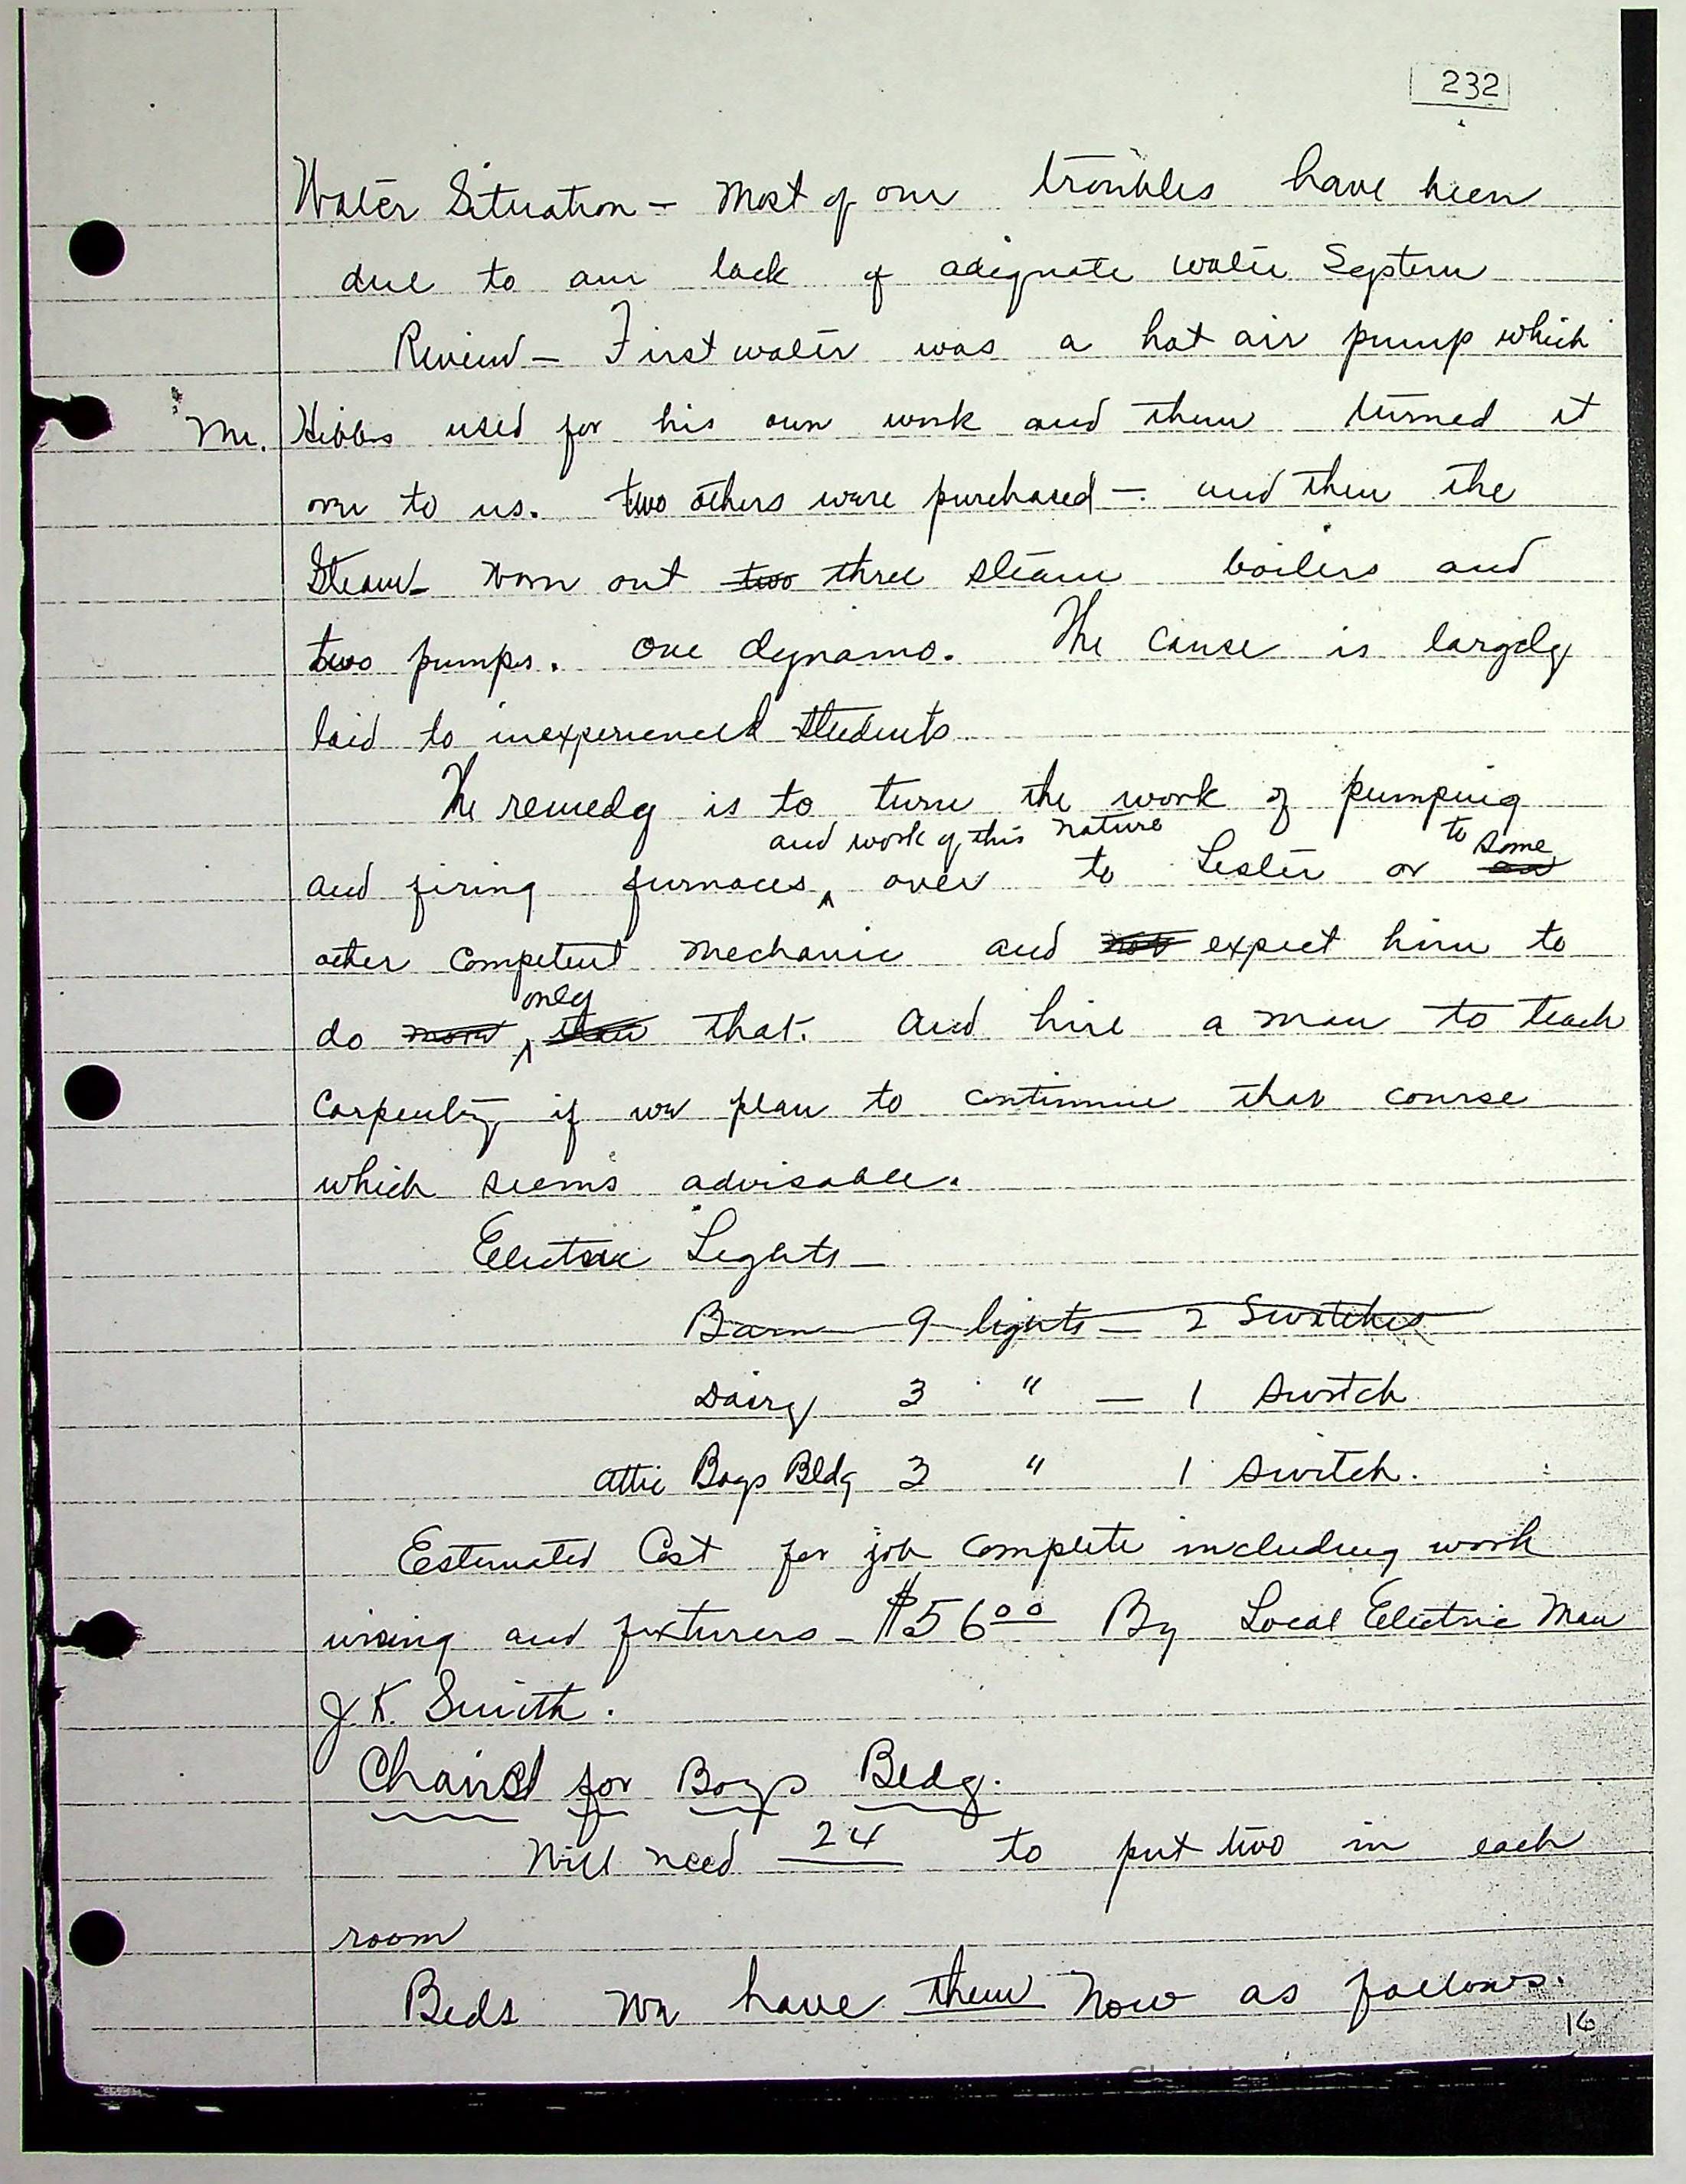 232
Water Situation - Most of our troubles have been
due to our lack of adequate water System
Review - First water was a hot air pump which
Mr. Hibbs used for his own work and then turned it
over to us. two others were purchased - and then the
Steam - worn out two three steam boilers and
two pumps. One dynamo. The cause is largely
laid to inexperienced students
The remedy is to turn the work of pumping
and work of this nature to some
and firing furnaces ^ over to Lester or an
other competent mechanic and not expect him to
only
do more ^ than that. and hire a man to teach
Carpentry if we plan to continue that course
which seems advisable.
Electric Lights -
Barn - 9 lights - 2 Switches
Dairy 3 " - 1 Switch
Attic Boys Bldg 3 " 1 Switch.
Estimated Cost for job complete including work
wiring and fixturers - $56 00 By Local Electric Man
J K. Smith.
Chairs for Boys Bldg.
Will need 24 to put two in each
room
Beds we have them now as follows.
16